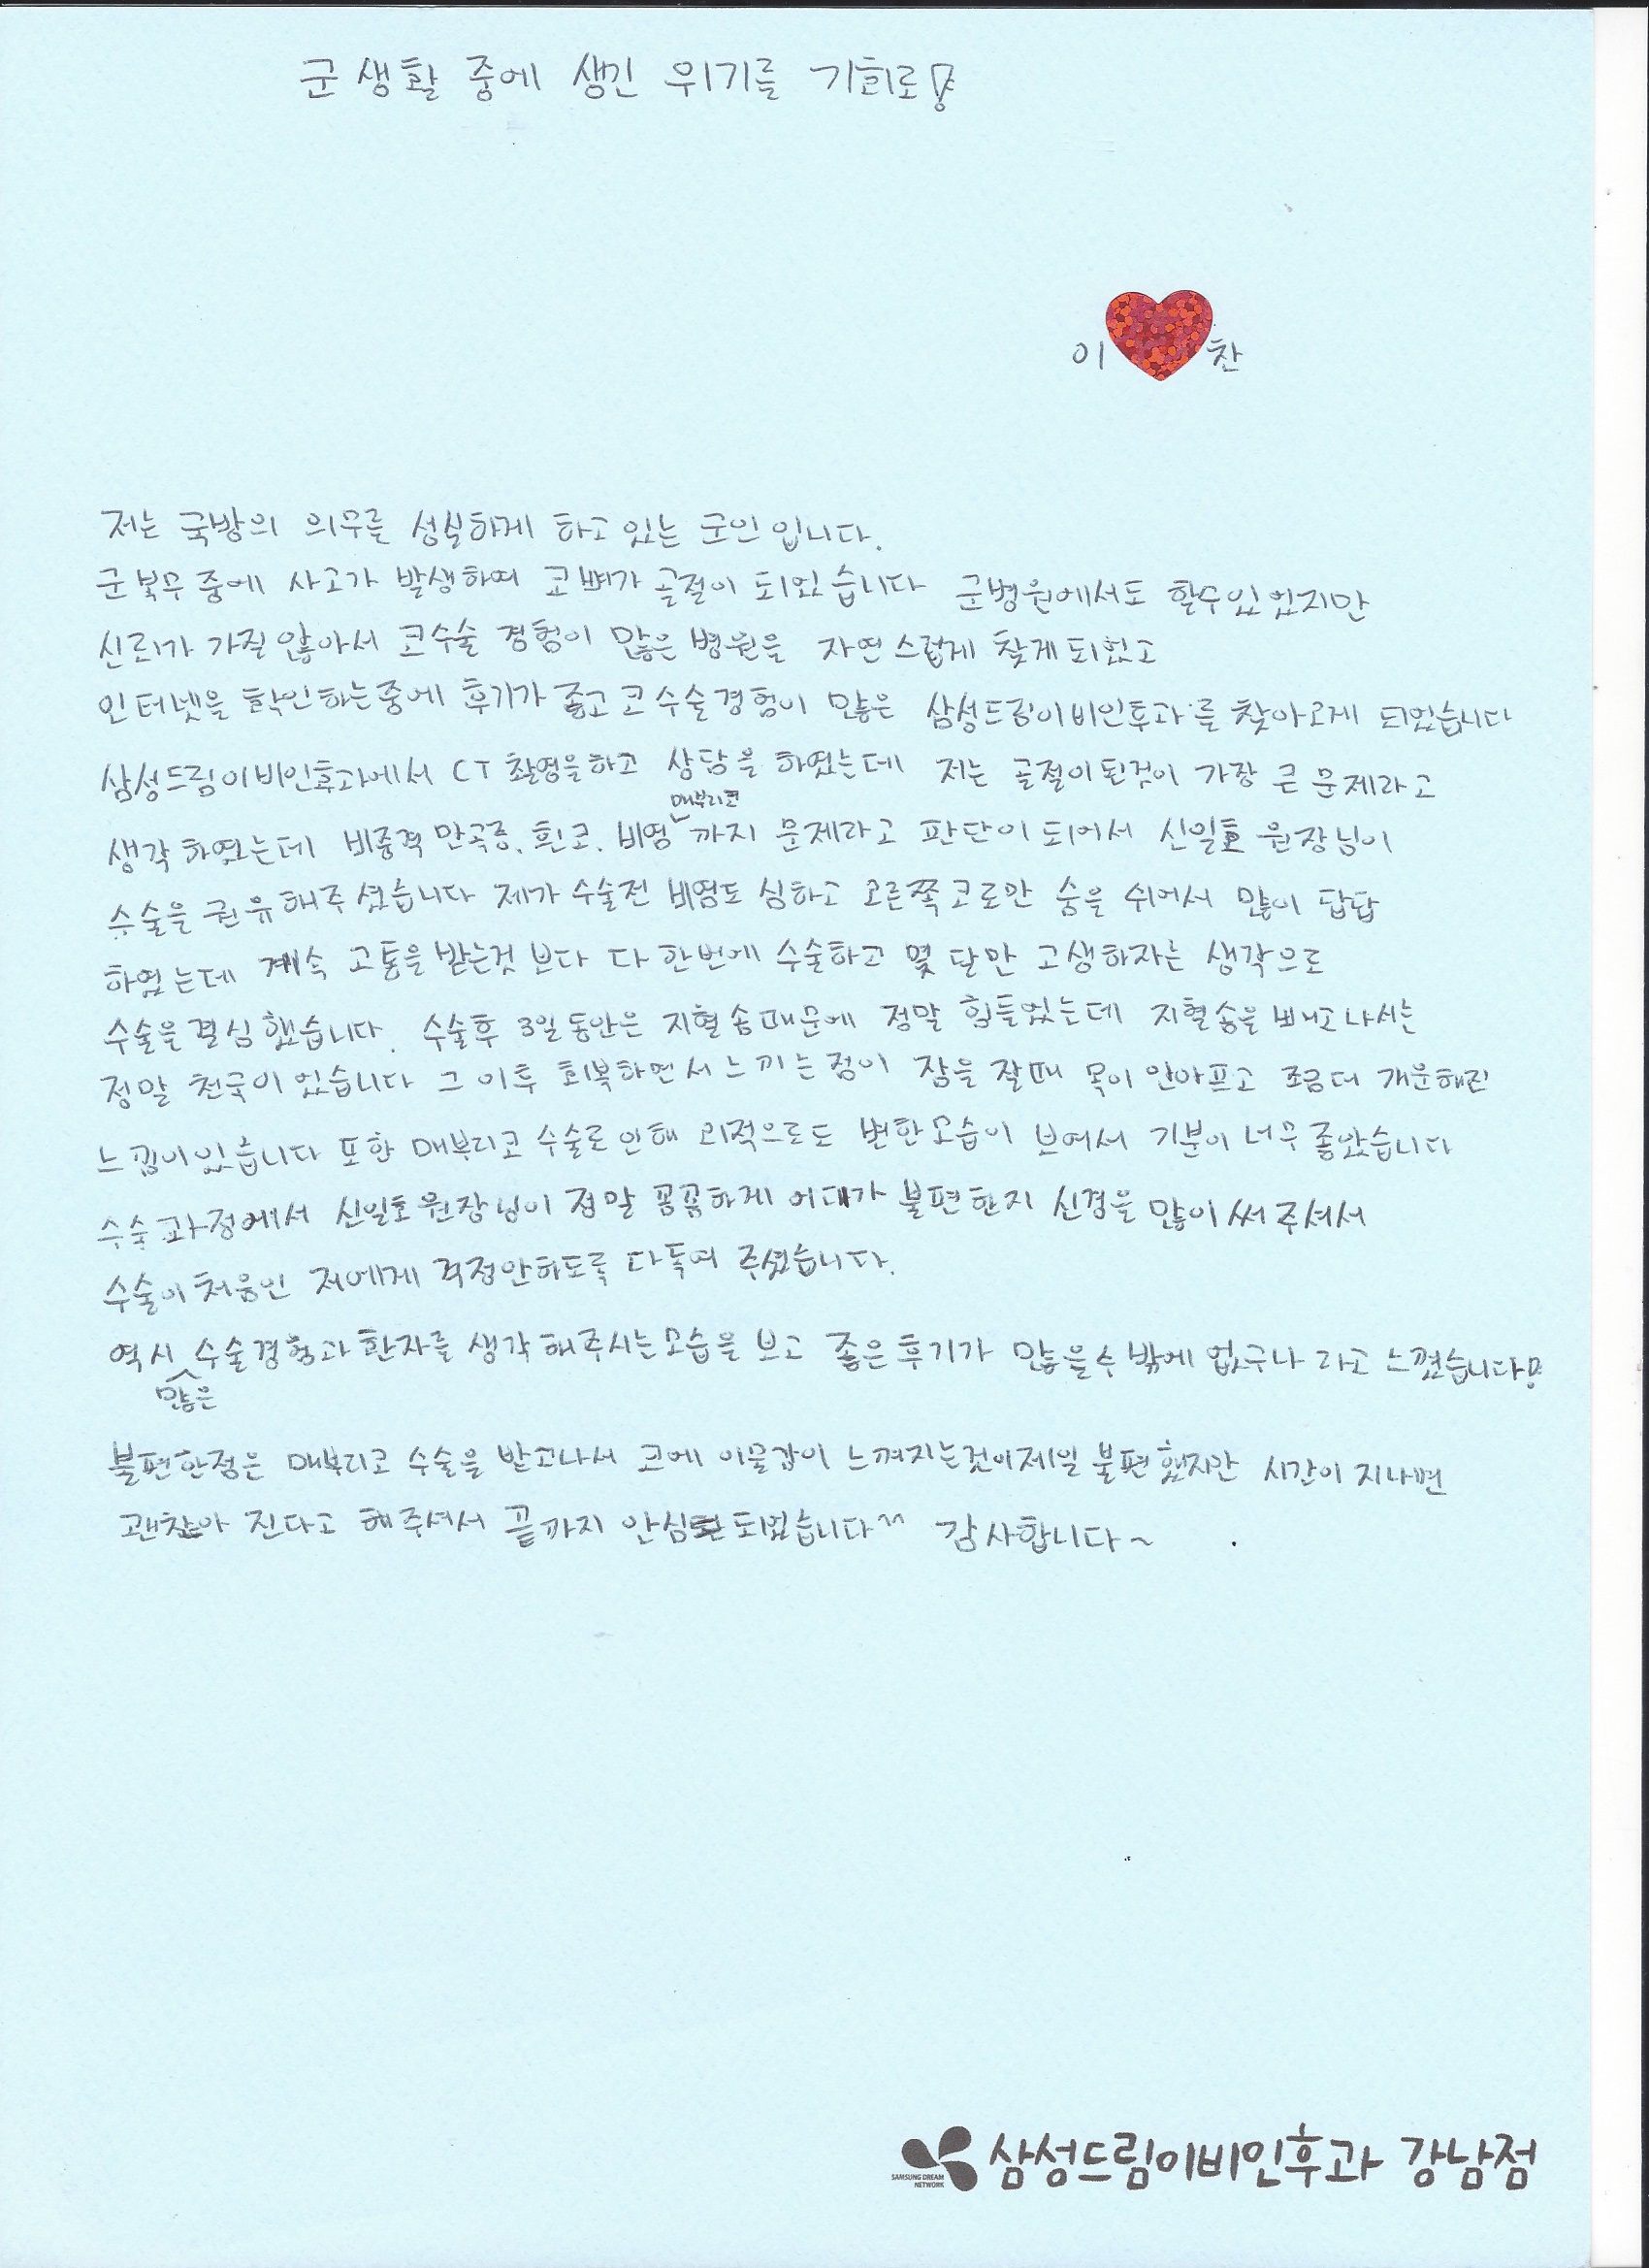 군 생활 중에 생긴 위기를 기회로!
이 찬
저는 국방의 의무를 성실하게 하고 있는 군인 입니다.
군 복무 중에 사고가 발생하여 코뼈가 골절이 되었습니다 군병원에서도 할수있었지만
신뢰가 가질 않아서 코수술 경험이 많은 병원을 자연스럽게 찾게되었고
인터넷을 확인하는중에 후기가 좋고 코수술경험이 많은 삼성드림이비인후과를 찾아오게 되었습니다
삼성드림이비인후과에서 CT 촬영을하고 상담을 하였는데 저는 골절이된것이 가장 큰 문제라고
매부리코
생각하였는데 비중격만곡증, 휜코, 비염 까지 문제라고 판단이 되어서 신일호 원장님이
수술을 권유해주셨습니다 제가 수술전 비염도 심하고 오른쪽코로만 숨을 쉬어서 많이 답답
하였는데 계속 고통을 받는것 보다 다 한번에 수술하고 몇 달만 고생하자는 생각으로
수술을 결심했습니다. 수술후 3일동안은 지혈솜때문에 정말 힘들었는데 지혈솜을 빼고나서는
정말 천국이었습니다 그 이후 회복하면서 느끼는점이 잠을 잘때 목이 안아프고 조금더 개운해진
느낌이있습니다 또한 매부리코 수술로인해 외적으로도 변한모습이 보여서 기분이 너무 좋았습니다
수술과정에서 신일호원장님이 정말 꼼꼼하게 어대가 불편한지 신경을 많이써주셔서
수술이처음인 저에게 걱정안하도록 다독여 주셨습니다.
역시 수술경험과 환자를 생각해주시는모습을 보고 좋은후기가 많을수 밖에 없구나 라고 느꼈습니다!
많은
불편한점은 매부리코 수술을 받고나서 코에 이물감이 느껴지는것이제일 불편했지만 시간이 지나면
괜찮아 진다고 해주셔서 끝까지 안심 되었습니다^^ 감사합니다~
SAMSUNG DREAM
NETWORK
삼성드림이비인후과 강남점